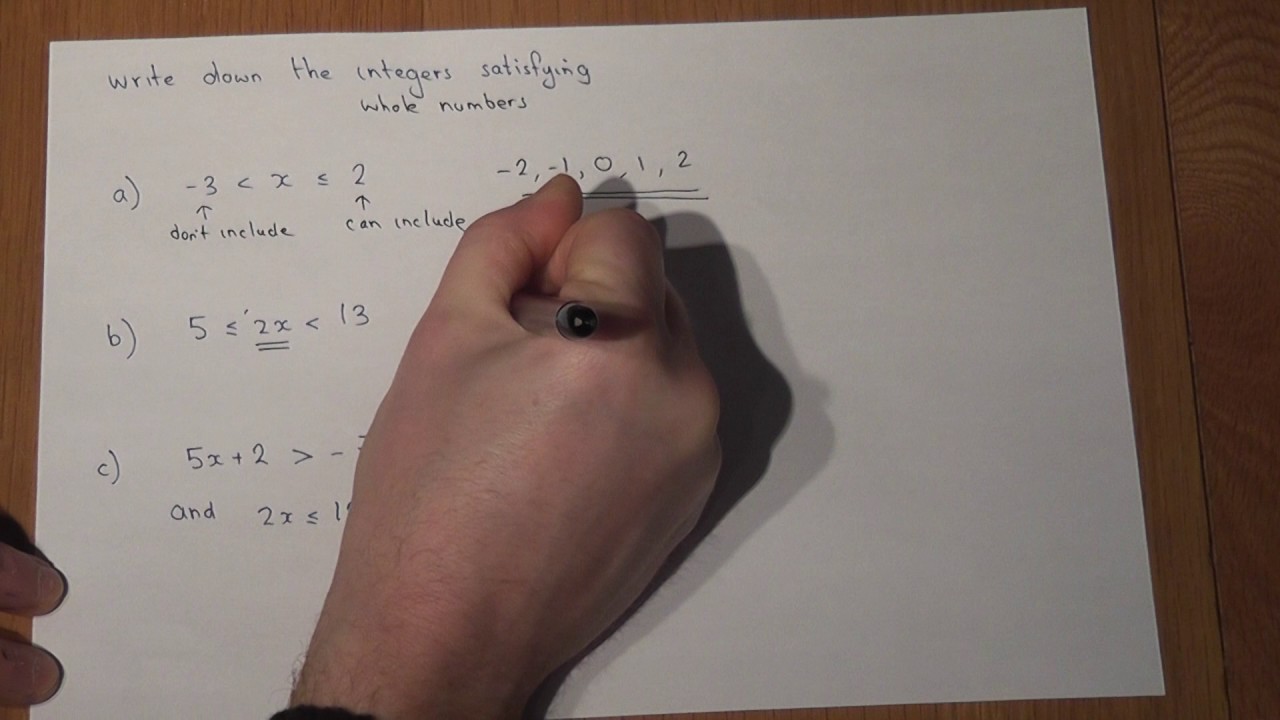 write down the integers satisfying
whole numbers
a) -3 < x ≤ 2 -2, -1, 0, 1, 2
↑ ↑
don't include can include
b) 5 ≤ 2x < 13
c) 5x + 2 > -
and 2x ≤